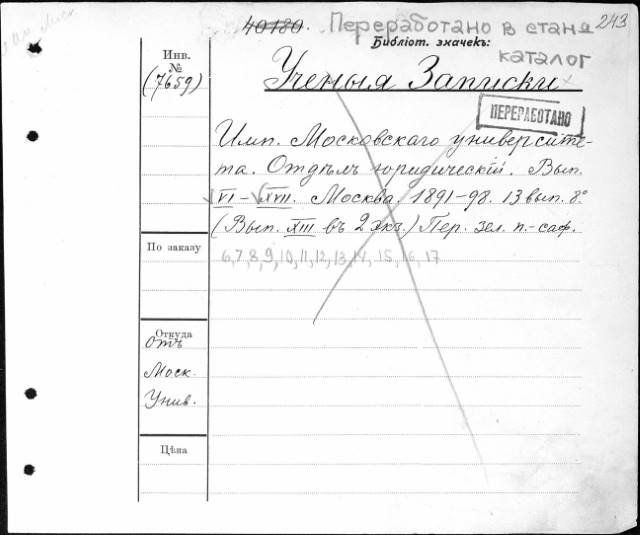 40180. Переработано в стана 243
Библіот. значекъ:
каталог
Инв.
№
(7659)
Ученыя Записки
ПЕРЕРАБОТАНО
Имп. Московскаго университе-
та. Отдѣлъ юридическій. Вып.
VI–XVII. Москва. 1891–98. 13 вып. 8°
(Вып. XIII въ 2 экз.) Пер. зел. п.-саф.
По заказу
6,7,8,9,10,11,12,13,14,15,16,17
Откуда
Отъ
Моск.
Унив.
Цѣна